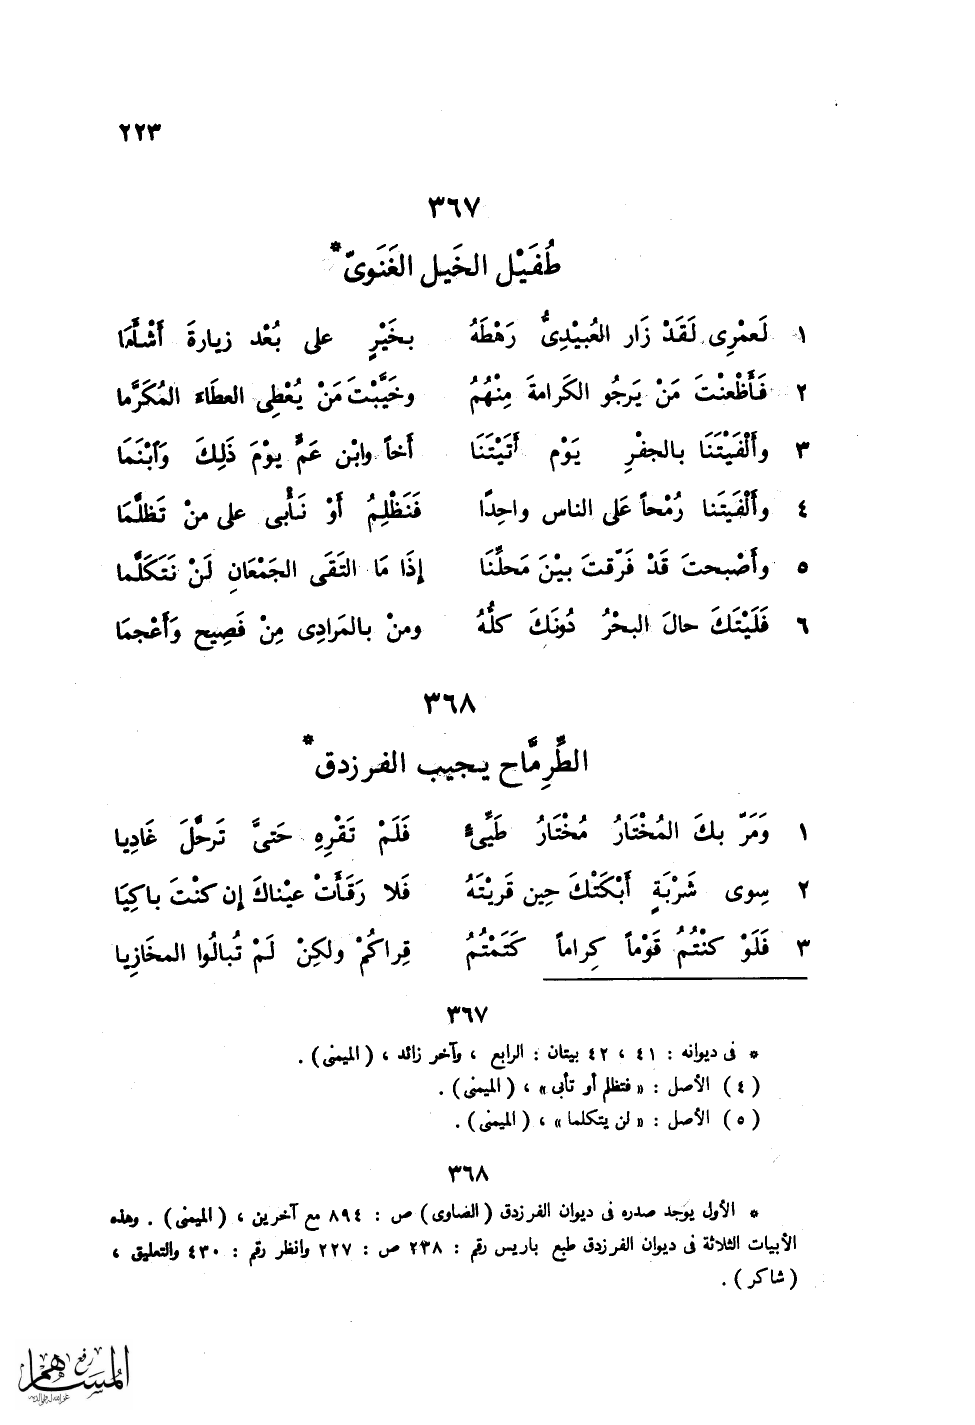 ٢٢٣
٣٦٧
طُفَيْل الخَيل الغَنَوىّ*
١ لَعمْرِى لَقَدْ زَار العُبيْدِىُّ رَهْطَهُ بخَيْرٍ على بُعْد زيارةَ أَشْأَمَا
٢ فَأَظْعنْتَ مَنْ يَرجُو الكَرامةَ مِنْهُمُ وخَيَّبْتَ مَنْ يُعْطِى العطَاءَ المُكَرَّما
٣ وأَلْفَيْتَنَا بالجفْرِ يَوْم أَتَيْتَنَا أَخاً وابْن عَمٍّ يوْمَ ذَلِكَ وَٱبْنَمَا
٤ وأَلْفَيَتَنا رُمْحاً عَلى الناس واحِدًا فَنَظْلِمُ أَوْ نَأْبى على منْ تَظلَّمَا
٥ وأَصْبحتَ قَدْ فَرّقتَ بيْنَ مَحلِّنَا إذَا مَا التَقَى الجَمْعَانِ لَنْ نَتَكلَّما
٦ فَلَيْتَكَ حالَ البحْرُ دُونَكَ كلُّهُ ومنْ بالمَرادِى مِنْ فَصِيح وَأَعْجمَا
٣٦٨
الطِّرِمَّاح يجيب الفرزدق*
١ وَمَرّ بكَ المُخْتَارُ مُخْتَارُ طَيِّئٍ فَلَمْ تَقْرِهِ حَتىَّ تَرحَّلَ غَادِيا
٢ سِوى شَرْبَةٍ أَبْكَتْكَ حِين قَريْتَهُ فَلا رَقَأَتْ عيْناكَ إن كنْتَ باكِيَا
٣ فَلَوْ كنْتُمُ قَوْماً كِراماً كَتَمْتُمُ قِراكُمْ ولكِنْ لَمْ تُبالُوا المخَازِيا
٣٦٧
* فى ديوانه : ٤١ ، ٤٢ بيتان : الرابع ، وآخر زائد ، ( الميمنى ) .
( ٤ ) الأصل : « فتظلم أو تأبى » ، ( الميمنى ) .
( ٥ ) الأصل : « لن يتكلما » ، ( الميمنى ) .
٣٦٨
* الأول يوجد صدره فى ديوان الفرزدق ( الصاوى ) ص : ٨٩٤ مع آخرين ، ( الميمنى ) . وهذه
الأبيات الثلاثة فى ديوان الفرزدق طبع باريس رقم : ٢٣٨ ص : ٢٢٧ وانظر رقم : ٤٣٠ والتعليق ،
( شاكر ) .
رفع
المساهم